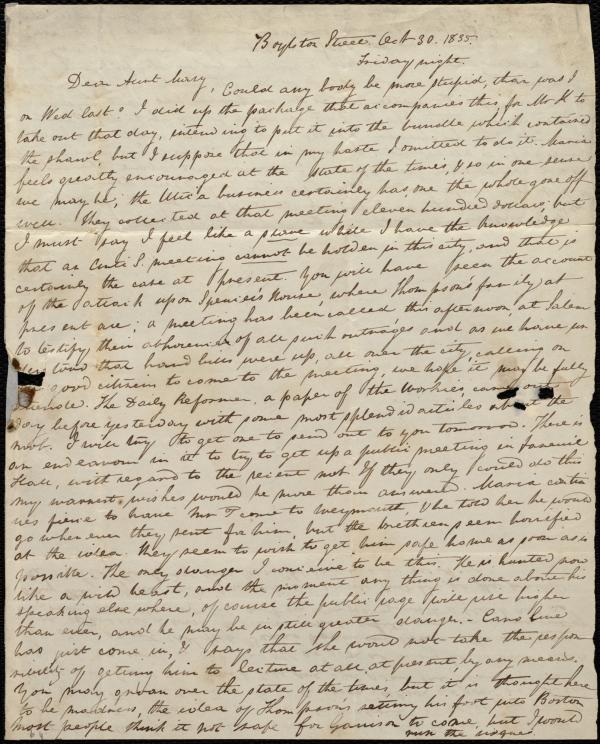 Boylston Street Oct 30. 1835.
Friday night.
Dear Aunt Mary,
Could any body be more stupid, than was I
on Wed last? I did up the package that accompanies this, for Mr K to
take out that day, intending to put it into the bundle which contained
the shawl, but I suppose that in my haste I omitted to do it. Maria
feels greatly encouraged at the state of the times, & so in one sense
we may be; the Utica business certainly has, one the whole gone off
well. They collected at that meeting eleven hundred dollars, but
I must say I feel like a slave while I have the knowledge
that an Anti S. meeting cannot be holden in this city, and that is
certainly the case at present. You will have seen the account
of the attack upon Spencer's House, where Thompson's family at
present are; a meeting has been called this afternoon, at Salem
to testify their abhorrence of all such outrages and as we have in
that hand bills were up, all over the city, calling on
good citizens to come to the meeting, we hope it may be fully
attended. The Daily Reformer, a paper of the Workies, came out
day before yesterday with some most splendid articles about the
mob. I will try to get one to send out to you tomorrow. There is
an endeavour in it to try to get up a public meeting in Faneuil
Hall, with regard to the recent mob. If they only could do this
my warmest wishes would be more than answered. Maria contin
ues fierce to have Mr T come to Weymouth, & he told her he would
go when ever they sent for him, but the brethren seem horrified
at the idea. They seem to wish to get him safe home as soon as is
possible. The only danger I conceive to be this. He is hunted now
like a wild beast, and the moment any thing is done about his
speaking else where, of course the public rage will rise higher
than ever, and he may be in still greater danger. - Caroline
has just come in, & says that she would not take the respon
sibility of getting him to lecture at all, at present, by any means.
You may groan over the state of the times, but it is thought here
to be madness, the idea of Thompsons setting his foot into Boston
Most people think it not safe for Garrison to come, but I would
run the risque.